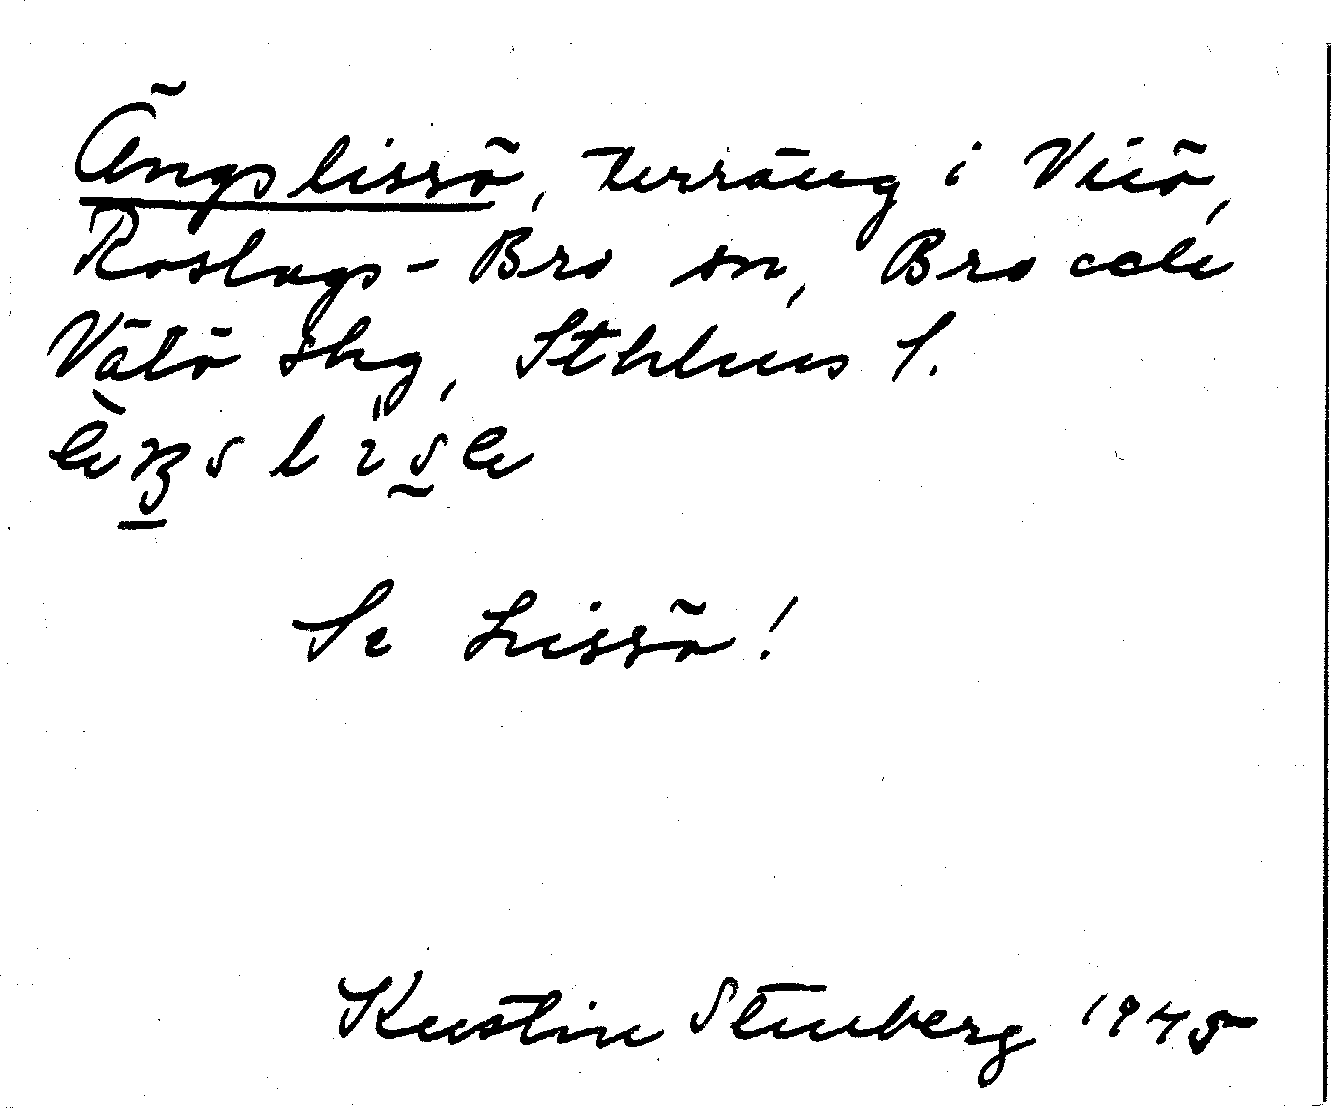 Ängslissö, terräng i Vüö,
Roslags-Bro sn, Bro och
Vätö skg, Sthlms l.
Se Lissö!
Kerstin Stenberg 1945